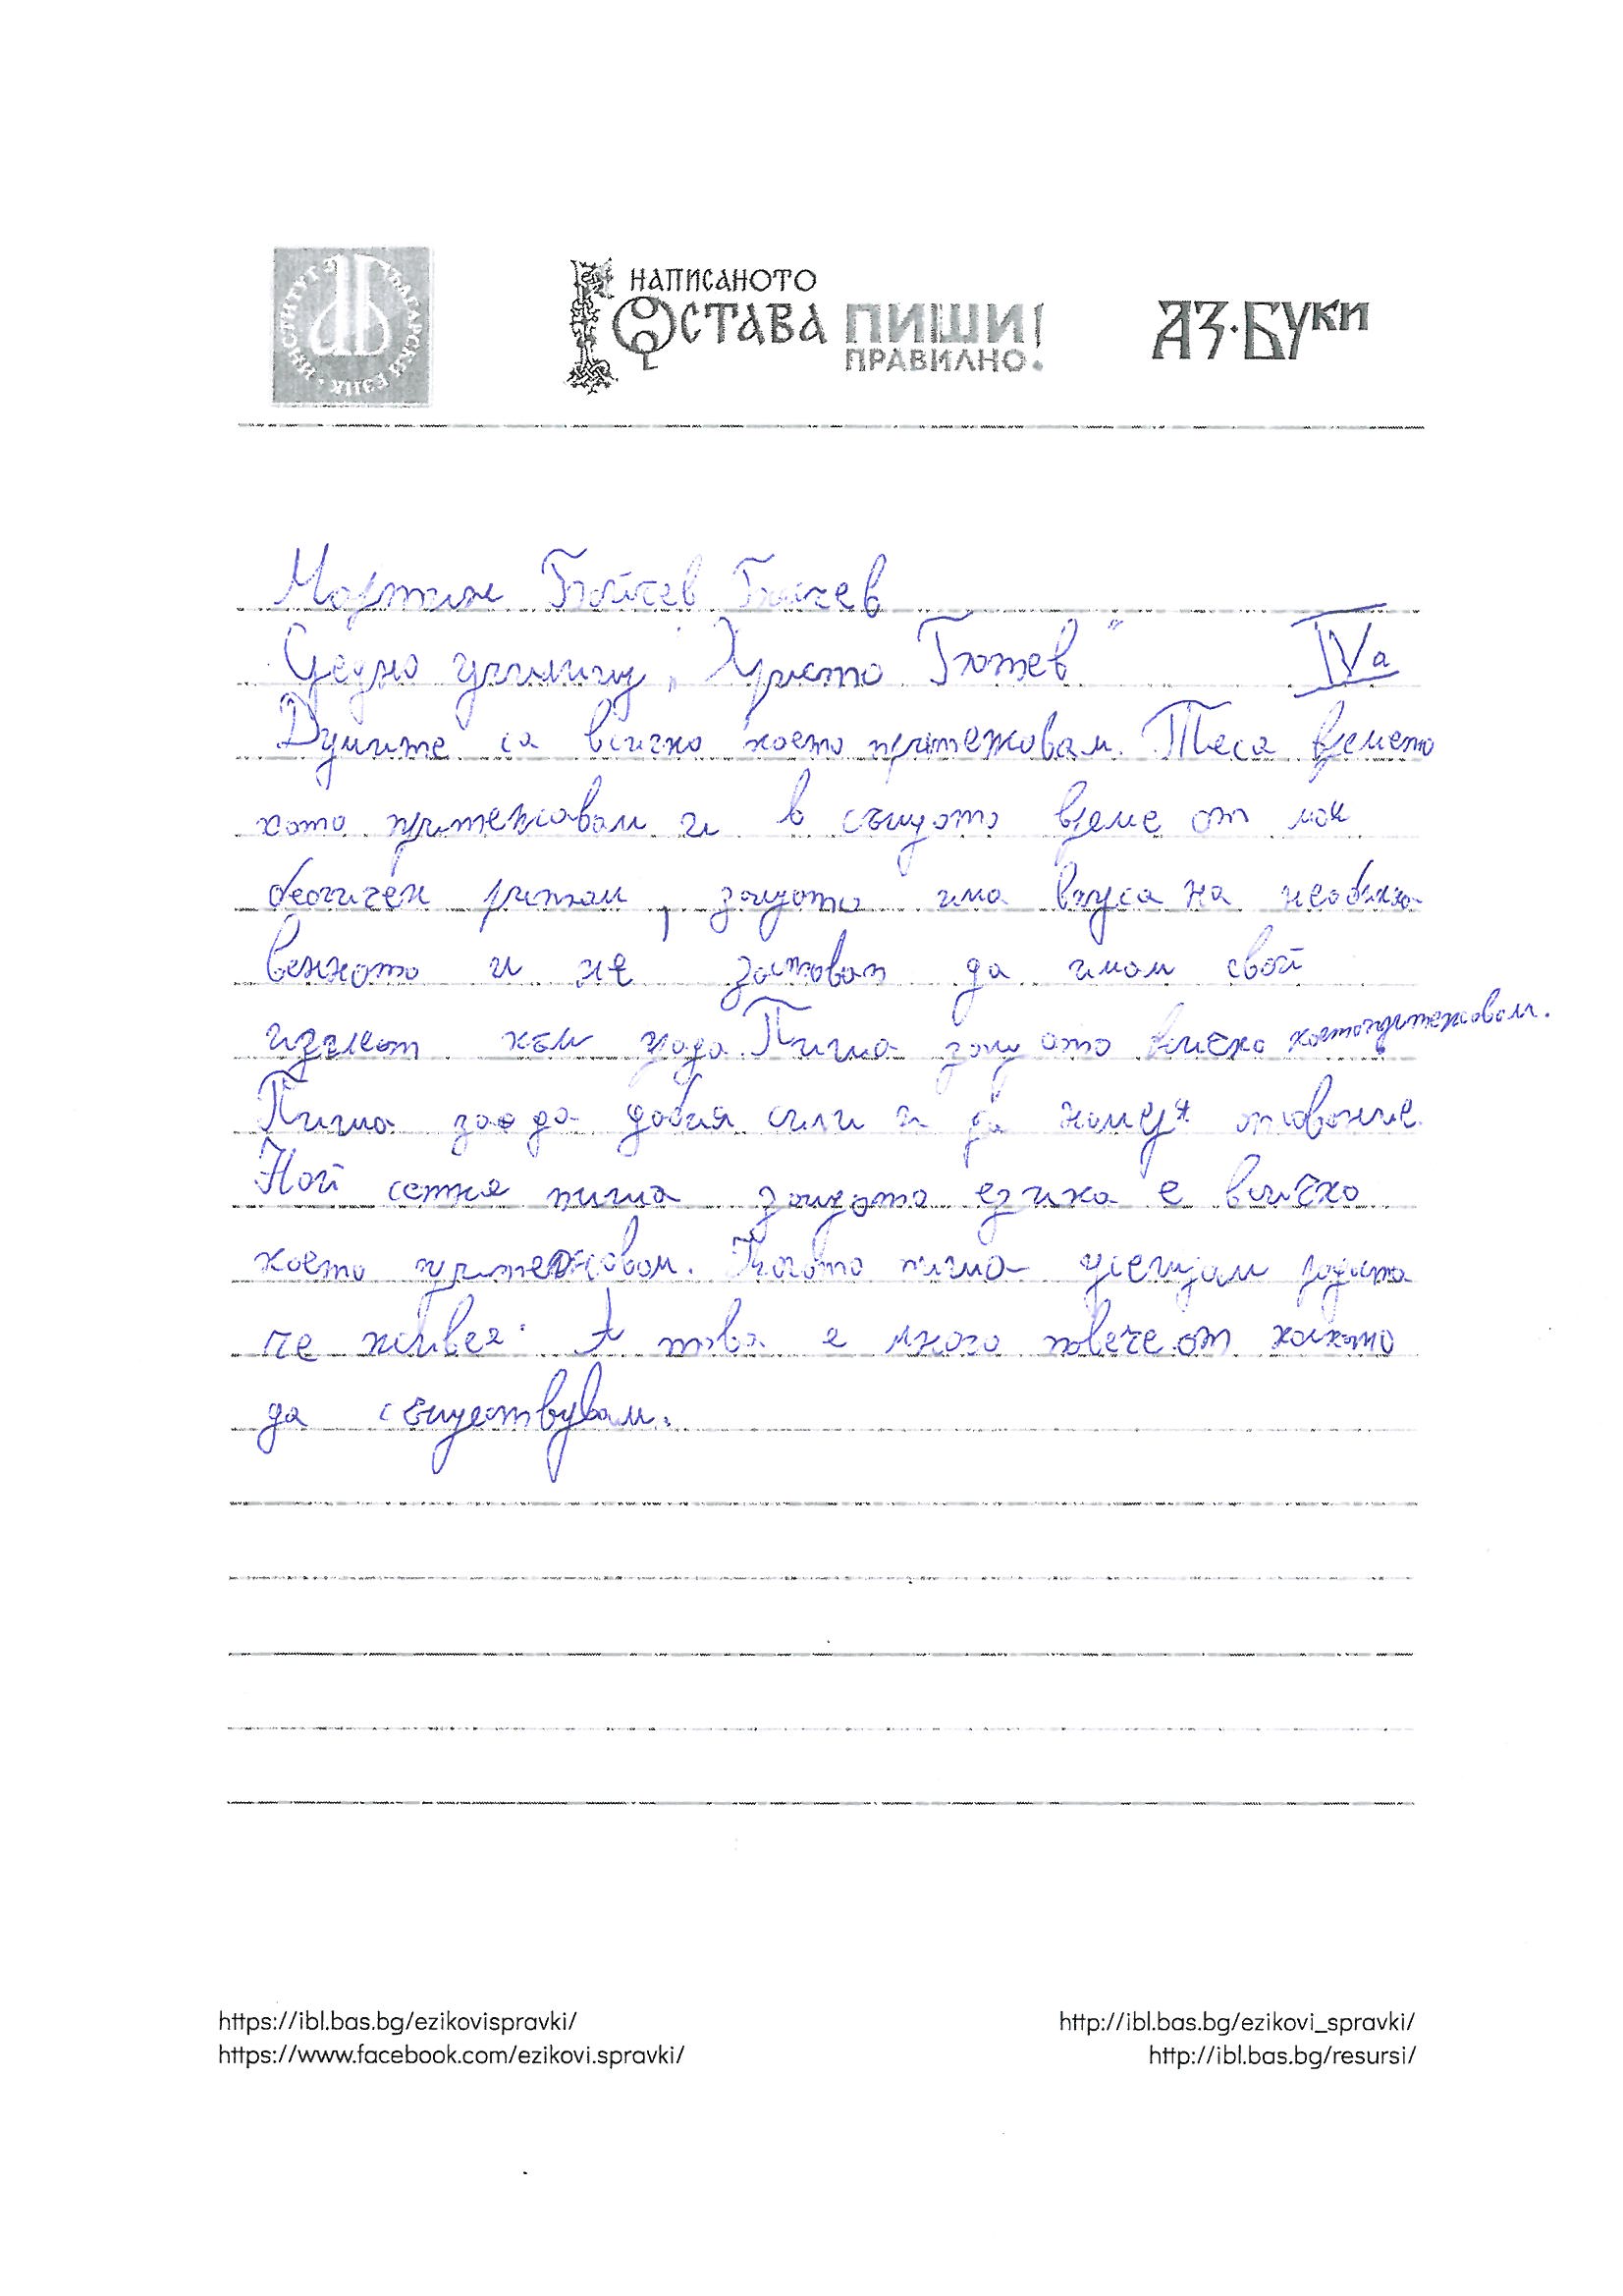 ИНСТИТУТ ЗА БЪЛГАРСКИ ЕЗИК
НАПИСАНОТО
ОСТАВА ПИШИ!
ПРАВИЛНО.
АЗ·БУКИ
Мартин Бойчев Бойчев
Средно училищу „Христо Ботев“ IVа
Думите са всичко което притежавам. Теса времето
кото притежавам и в същото време от мои
делничен ритъм, защото има вкуса на необикно
венното и не застават да имам свой
към Пиша защото всичко коетопритежавам.
Пиша за да добия сили и да намеря
Най сетне пиша защото езика е всичко
което притежавам. Когато пиша усещам
че живея. А това е много повече от колкото
да съществувам.
https://ibl.bas.bg/ezikovispravki/
https://www.facebook.com/ezikovi.spravki/
http://ibl.bas.bg/ezikovi_spravki/
http://ibl.bas.bg/resursi/